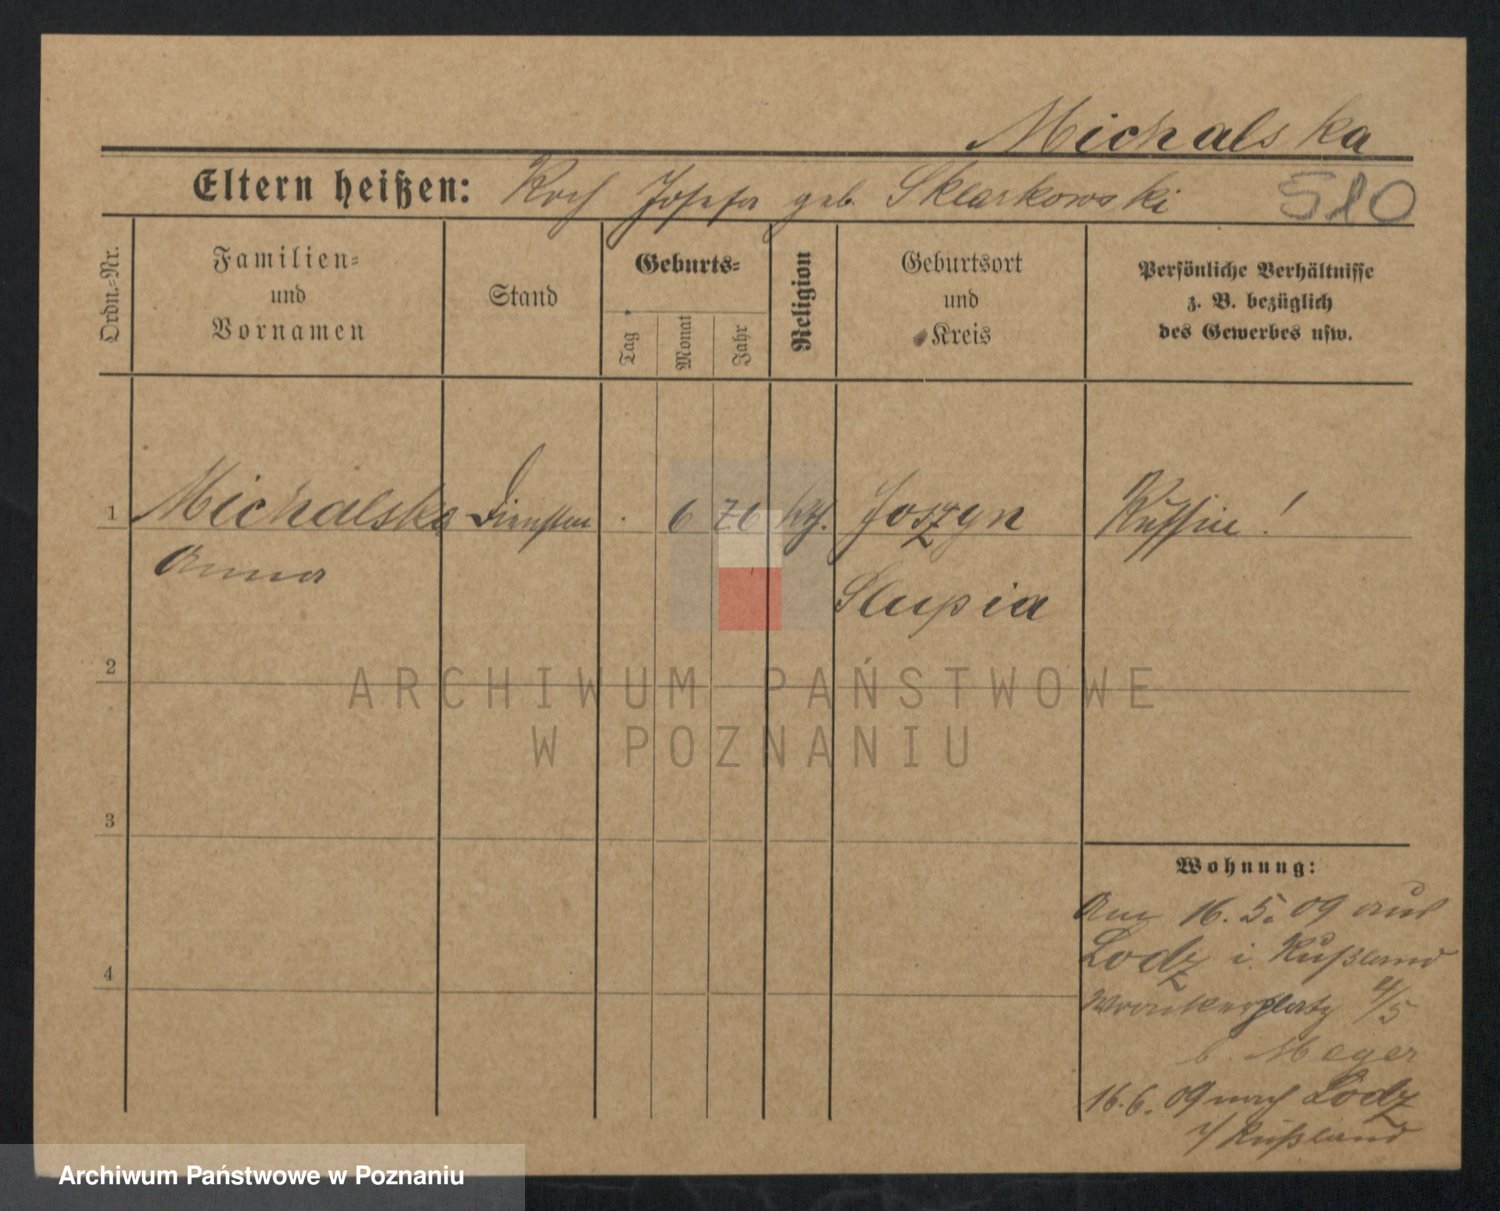 Michalska
Eltern heißen: Roch Josefa geb. Sklarkowski
510
Ordn.-Nr.
Familien-
und
Vornamen
Stand
Geburts-
Tag
Monat
Jahr
Religion
Geburtsort
und
Kreis
Persönliche Verhältnisse
z. B. bezüglich
des Gewerbes usw.
1 Michalska 6 76 kth. Joszyn Russin!
Anna Slupia
2
3
4
ARCHIWUM PAŃSTWOWE
W POZNANIU
Wohnung:
Am 16. 5. 09 aus
Lodz i. Rußland
Wronkerplatz 4/5
b. Meyer
16. 6. 09 nach Lodz
i/ Rußland
Archiwum Państwowe w Poznaniu